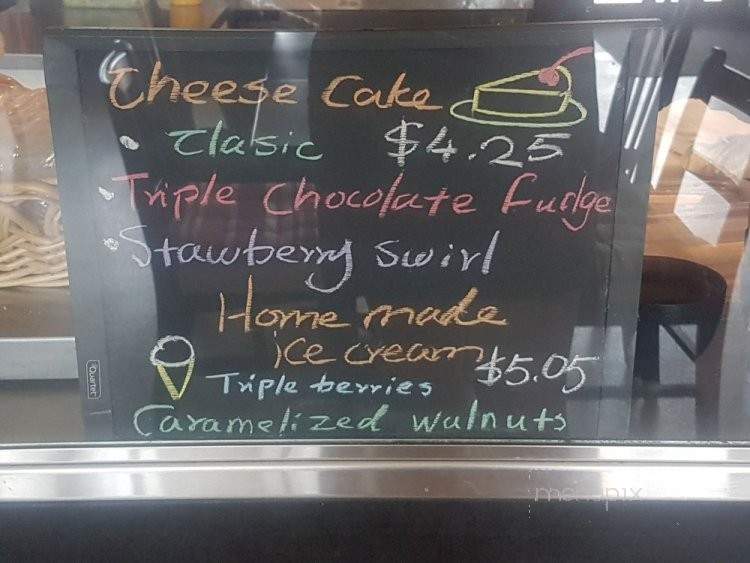 Cheese Cake
• Clasic $4.25
• Triple Chocolate Fudge
• Stawberry swirl
Home made
ice cream $5.05
Triple berries
Caramelized walnuts
Quartet
menupix